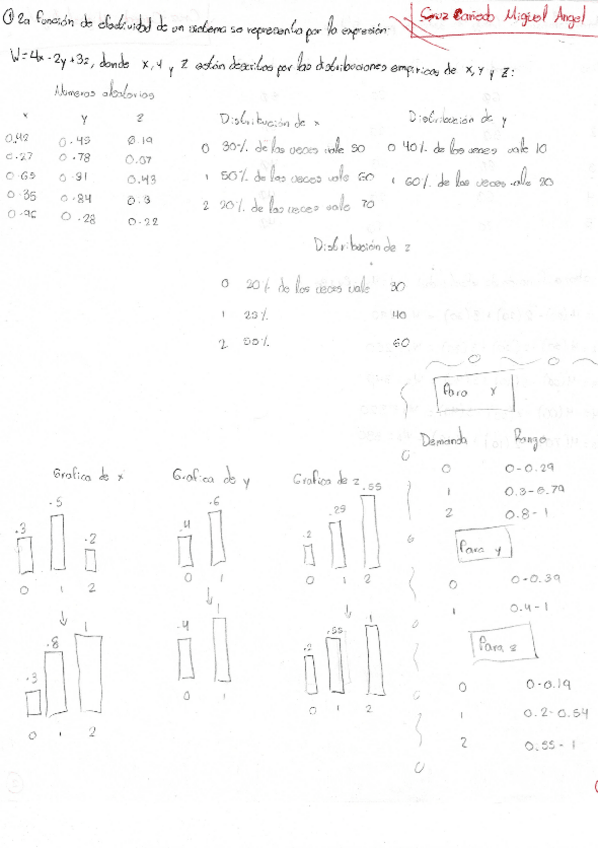 ① La función de efectividad de un sistema se representa por la expresión:
Cruz Cañedo Miguel Angel
W=4x-2y+3z, donde x, y y z están descritas por las distribuciones empiricas de x, y y z:
Números aleatorios
x y z
0.42 0.45 0.19
0.27 0.78 0.07
0.65 0.91 0.43
0.35 0.84 0.3
0.95 0.28 0.22
Distribución de x
0 30% de las veces vale 50
1 50% de las veces vale 60
2 20% de las veces vale 70
Distribución de y
0 40% de las veces vale 10
1 60% de las veces vale 20
Distribución de z
0 20% de las veces vale 30
1 25% 40
2 55% 60
Para x
Demanda Rango
0 0-0.29
1 0.3-0.79
2 0.8-1
Para y
0 0-0.39
1 0.4-1
Para z
0 0-0.19
1 0.2-0.54
2 0.55-1
Grafica de x
.3 .5 .2
0 1 2
.3 .8 1
0 1 2
Grafica de y
.4 .6
0 1
.4 1
0 1
Grafica de z
.2 .25 .55
0 1 2
.2 .55 1
0 1 2